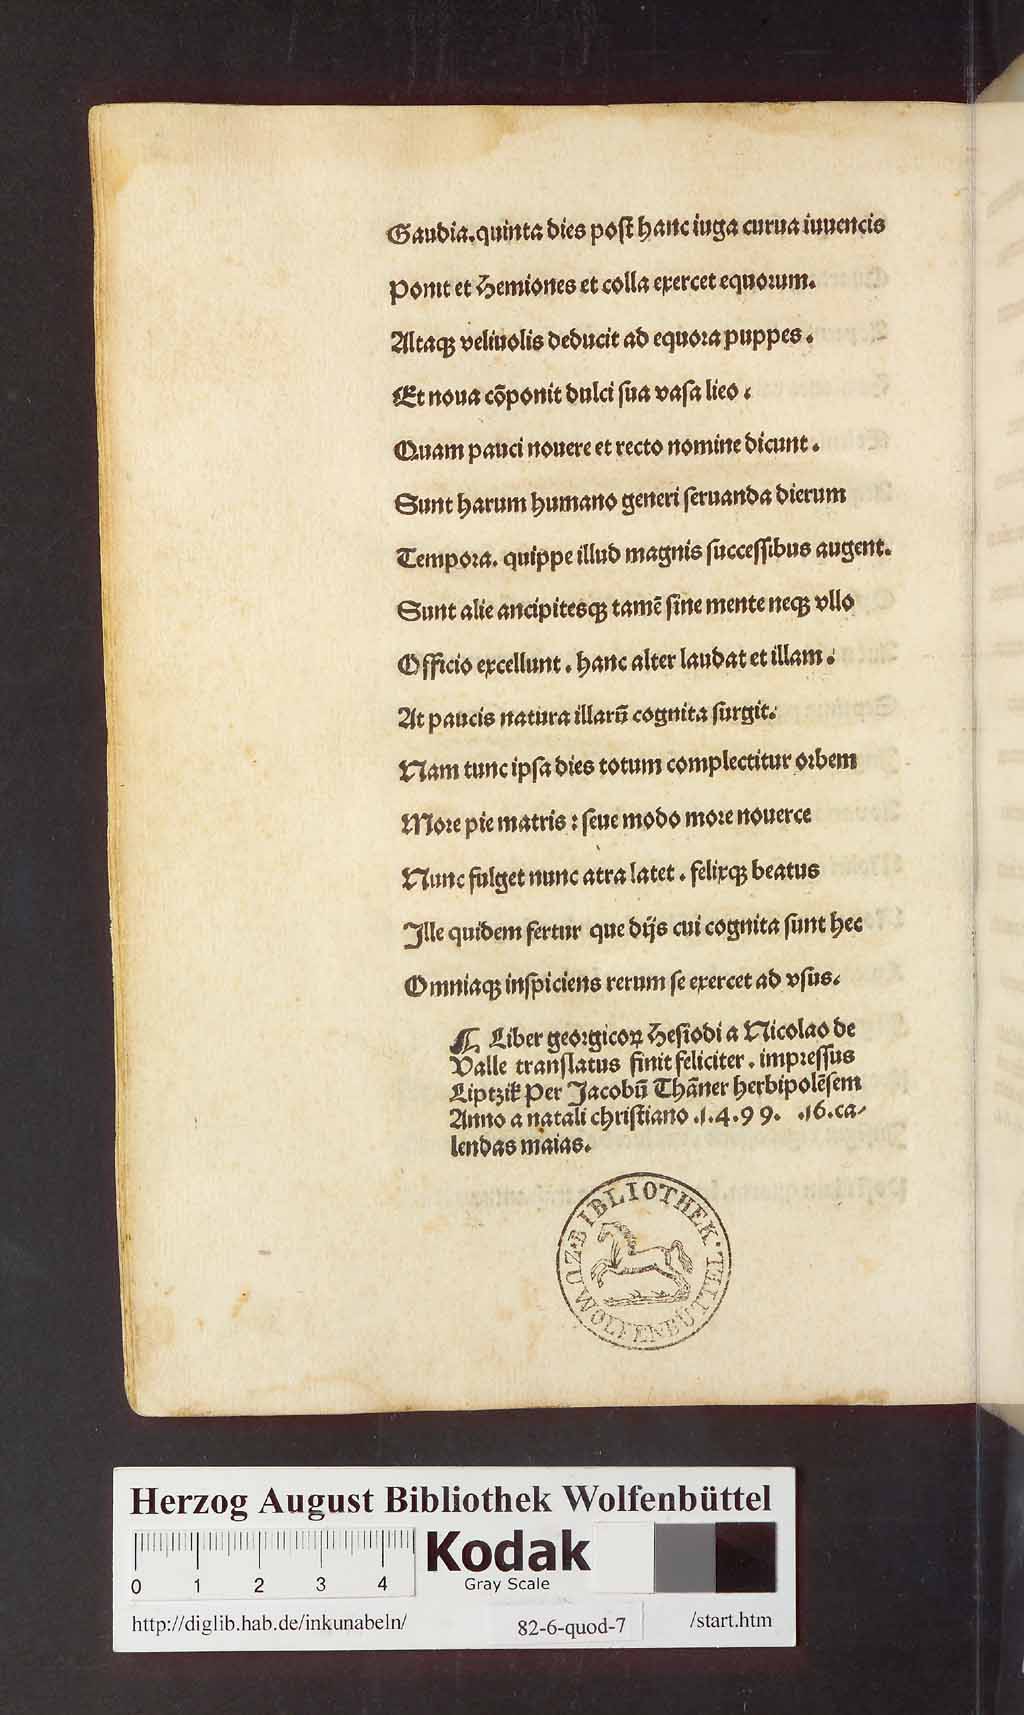 Gaudia. quinta dies post hanc iuga curua iuuencis
Ponit et Hemiones et colla exercet equorum.
Altaqꝫ veliuolis deducit ad equora puppes.
Et noua cōponit dulci sua vasa lieo.
Quam pauci nouere et recto nomine dicunt.
Sunt harum humano generi seruanda dierum
Tempora. quippe illud magnis successibus augent.
Sunt alie ancipitesqꝫ tamē sine mente neqꝫ vllo
Officio excellunt. hanc alter laudat et illam.
At paucis natura illarū cognita surgit.
Nam tunc ipsa dies totum complectitur orbem
More pie matris : seue modo more nouerce
Nunc fulget nunc atra latet. felixqꝫ beatus
Ille quidem fertur que dijs cui cognita sunt hec
Omniaqꝫ inspiciens rerum se exercet ad vsus.
¶ Liber georgicoꝝ Hesiodi a Nicolao de
Valle translatus finit feliciter. impressus
Liptzik Per Jacobū Thāner herbipolēsem
Anno a natali christiano .1.4.99. .16.ca-
lendas maias.
BIBLIOTHEK ZU WOLFENBÜTTEL
Herzog August Bibliothek Wolfenbüttel
0 1 2 3 4
Kodak
Gray Scale
http://diglib.hab.de/inkunabeln/ 82-6-quod-7 /start.htm